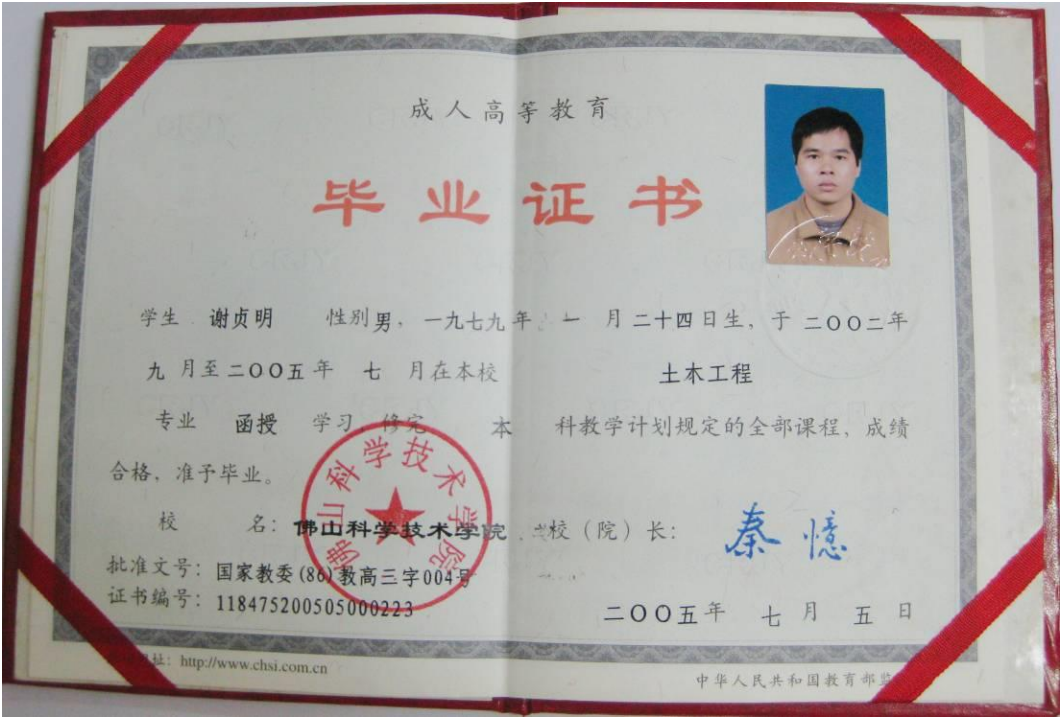 成人高等教育
毕业证书
学生 谢贞明 性别男，一九七九年 一 月二十四日生，于二〇〇二年
九 月至二〇〇五年 七 月在本校 土木工程
专业 函授 学习，修完 本 科教学计划规定的全部课程，成绩
合格，准予毕业。
校 名：佛山科学技术学院 校（院）长：秦憶
批准文号：国家教委(86)教高三字004号
证书编号：118475200505000223
二〇〇五年 七 月 五 日
佛山科学技术学院
址：http://www.chsi.com.cn
中华人民共和国教育部监